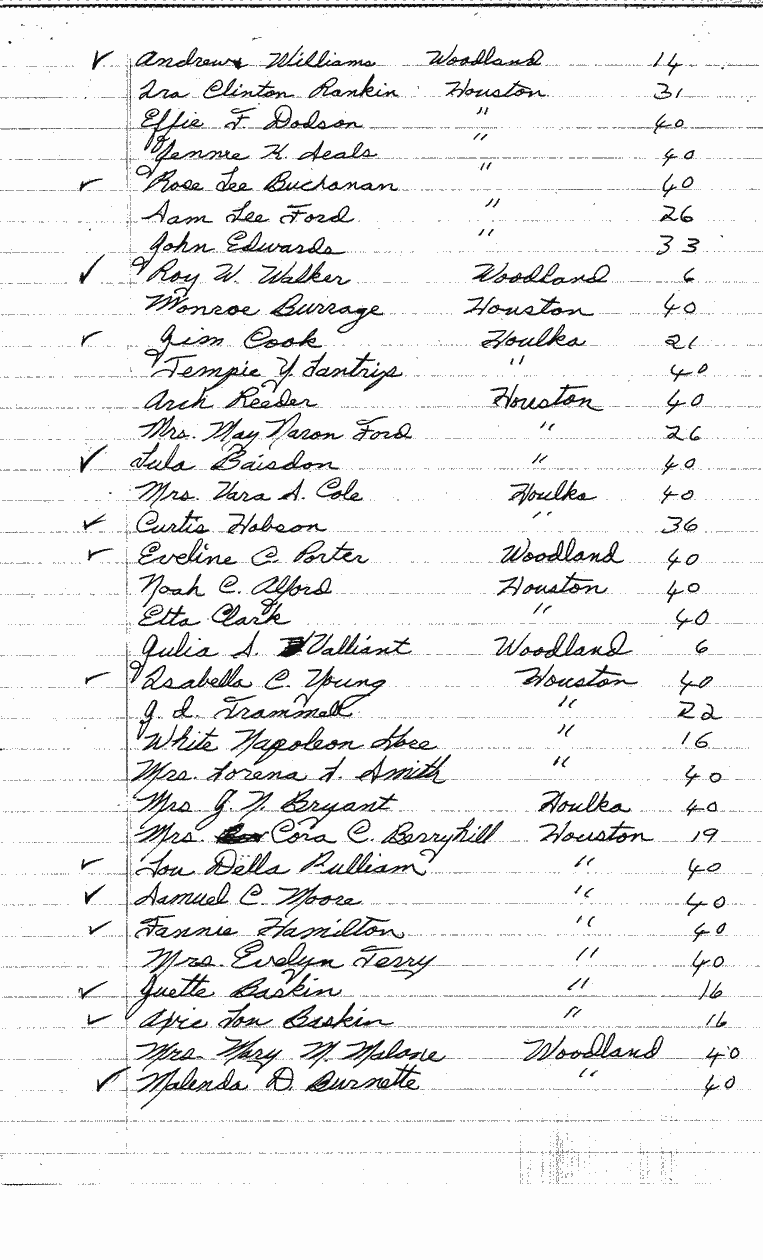 ✓ Andrew Williams Woodland 14
Ira Clinton Rankin Houston 31
Effie F. Dodson " 40
Jennie K. Seals " 40
✓ Rose Lee Buchanan " 40
Sam Lee Ford " 26
John Edwards " 33
✓ Roy W. Walker Woodland 6
Monroe Burrage Houston 40
✓ Jim Cook Houlka 21
Tempie Y. Lantrip " 40
Arch Reeder Houston 40
Mrs. May Naron Ford " 26
✓ Lula Baisdon " 40
Mrs. Vara S. Cole Houlka 40
✓ Curtis Hobson " 36
✓ Eveline C. Porter Woodland 40
Noah C. Alford Houston 40
Etta Clark " 40
Julia S. Valliant Woodland 6
✓ Isabella C. Young Houston 40
J. I. Trammell " 22
White Napoleon " 16
Mrs. Lorena F. Smith " 40
Mrs J. N. Bryant Houlka 40
Mrs. Cora C. Berryhill Houston 19
✓ Lou Della Pulliam " 40
✓ Samuel C. Moore " 40
✓ Fannie Hamilton " 40
Mrs. Evelyn Terry " 40
✓ Baskin " 16
✓ Lou Baskin " 16
Mrs. Mary M. Malone Woodland 40
✓ Malenda D. Burnette " 40